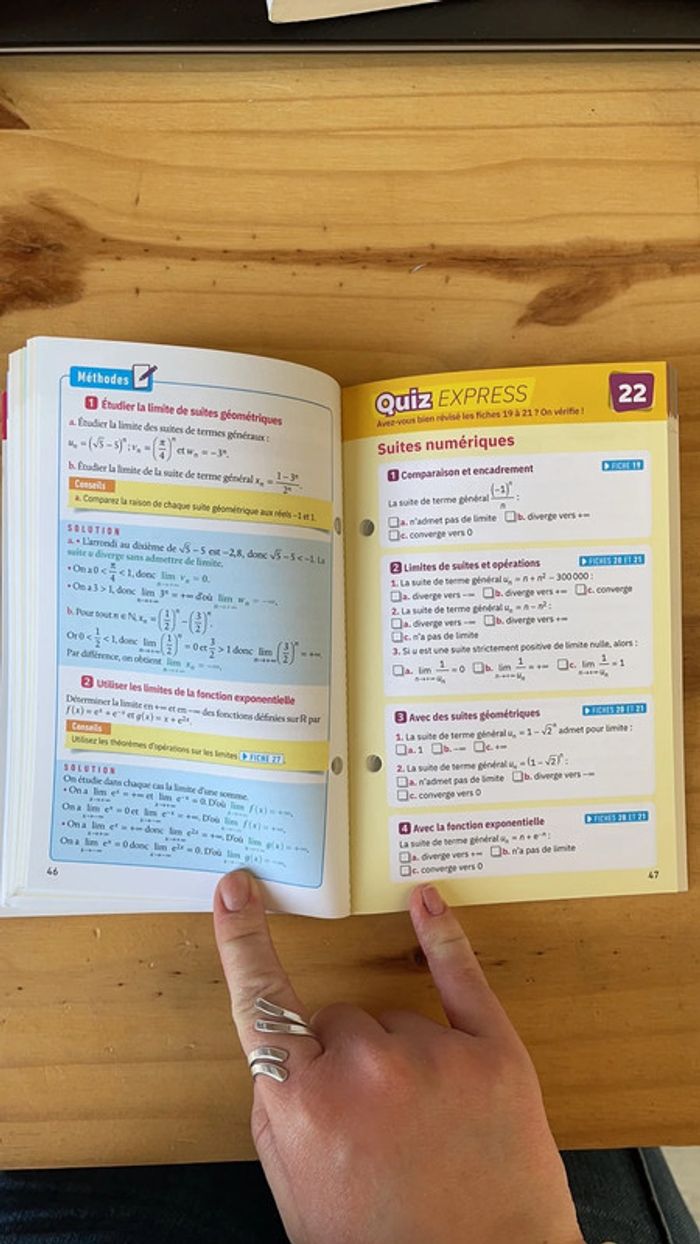 Méthodes
1 Étudier la limite de suites géométriques
a. Étudier la limite des suites de termes généraux :
uₙ = (√5 − 5)ⁿ ; vₙ = (π/4)ⁿ et wₙ = −3ⁿ.
b. Étudier la limite de la suite de terme général xₙ = (1 − 3ⁿ)/2ⁿ.
Conseils
a. Comparez la raison de chaque suite géométrique aux réels −1 et 1.
SOLUTION
a. • L'arrondi au dixième de √5 − 5 est −2,8, donc √5 − 5 < −1. La
suite u diverge sans admettre de limite.
• On a 0 < π/4 < 1, donc lim n→+∞ vₙ = 0.
• On a 3 > 1, donc lim n→+∞ 3ⁿ = +∞ d'où lim n→+∞ wₙ = −∞.
b. Pour tout n ∈ ℕ, xₙ = (1/2)ⁿ − (3/2)ⁿ.
Or 0 < 1/2 < 1, donc lim n→+∞ (1/2)ⁿ = 0 et 3/2 > 1 donc lim n→+∞ (3/2)ⁿ = +∞.
Par différence, on obtient lim n→+∞ xₙ = −∞.
2 Utiliser les limites de la fonction exponentielle
Déterminer la limite en +∞ et en −∞ des fonctions définies sur ℝ par
f(x) = eˣ + e⁻ˣ et g(x) = x + e²ˣ.
Conseils
Utilisez les théorèmes d'opérations sur les limites ▶ FICHE 27
SOLUTION
On étudie dans chaque cas la limite d'une somme.
• On a lim x→+∞ eˣ = +∞ et lim x→+∞ e⁻ˣ = 0. D'où lim x→+∞ f(x) = +∞.
On a lim x→−∞ eˣ = 0 et lim x→−∞ e⁻ˣ = +∞. D'où lim x→−∞ f(x) = +∞.
• On a lim x→+∞ eˣ = +∞ donc lim x→+∞ e²ˣ = +∞. D'où lim x→+∞ g(x) = +∞.
On a lim x→−∞ eˣ = 0 donc lim x→−∞ e²ˣ = 0. D'où lim x→−∞ g(x) = −∞.
46
Quiz EXPRESS
22
Avez-vous bien révisé les fiches 19 à 21 ? On vérifie !
Suites numériques
1 Comparaison et encadrement ▶ FICHE 19
La suite de terme général (−1)ⁿ/n :
☐ a. n'admet pas de limite ☐ b. diverge vers +∞
☐ c. converge vers 0
2 Limites de suites et opérations ▶ FICHES 20 ET 21
1. La suite de terme général uₙ = n + n² − 300 000 :
☐ a. diverge vers −∞ ☐ b. diverge vers +∞ ☐ c. converge
2. La suite de terme général uₙ = n − n² :
☐ a. diverge vers −∞ ☐ b. diverge vers +∞
☐ c. n'a pas de limite
3. Si u est une suite strictement positive de limite nulle, alors :
☐ a. lim n→+∞ 1/uₙ = 0 ☐ b. lim n→+∞ 1/uₙ = +∞ ☐ c. lim n→+∞ 1/uₙ = 1
3 Avec des suites géométriques ▶ FICHES 20 ET 21
1. La suite de terme général uₙ = 1 − √2ⁿ admet pour limite :
☐ a. 1 ☐ b. −∞ ☐ c. +∞
2. La suite de terme général uₙ = (1 − √2)ⁿ :
☐ a. n'admet pas de limite ☐ b. diverge vers −∞
☐ c. converge vers 0
4 Avec la fonction exponentielle ▶ FICHES 20 ET 21
La suite de terme général uₙ = n + e⁻ⁿ :
☐ a. diverge vers +∞ ☐ b. n'a pas de limite
☐ c. converge vers 0
47